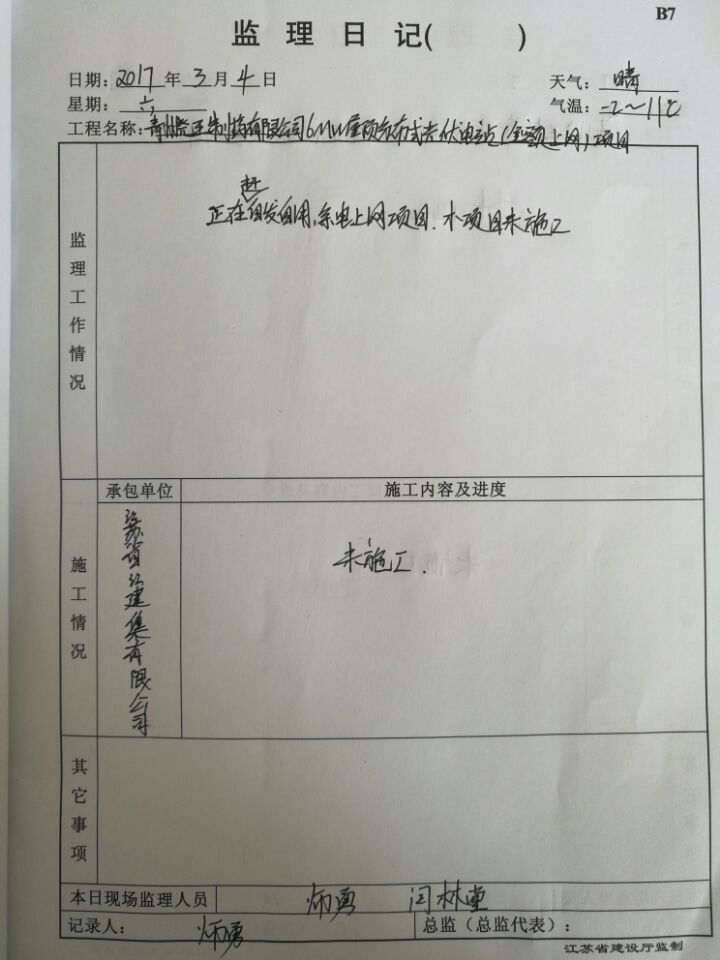 B7
监理日记( )
日期：2017年3月4日 天气：晴
星期：六 气温：-2～11℃
工程名称：青州尧王制药有限公司6MW屋顶分布式光伏电站(全额上网)项目
监理工作情况
赶
正在自发自用、余电上网项目．本项目未施工
承包单位 施工内容及进度
施工情况
江苏省 建集有限公司
未施工．
其它事项
本日现场监理人员 师勇 闫林堂
记录人： 师勇 总监（总监代表）：
江苏省建设厅监制